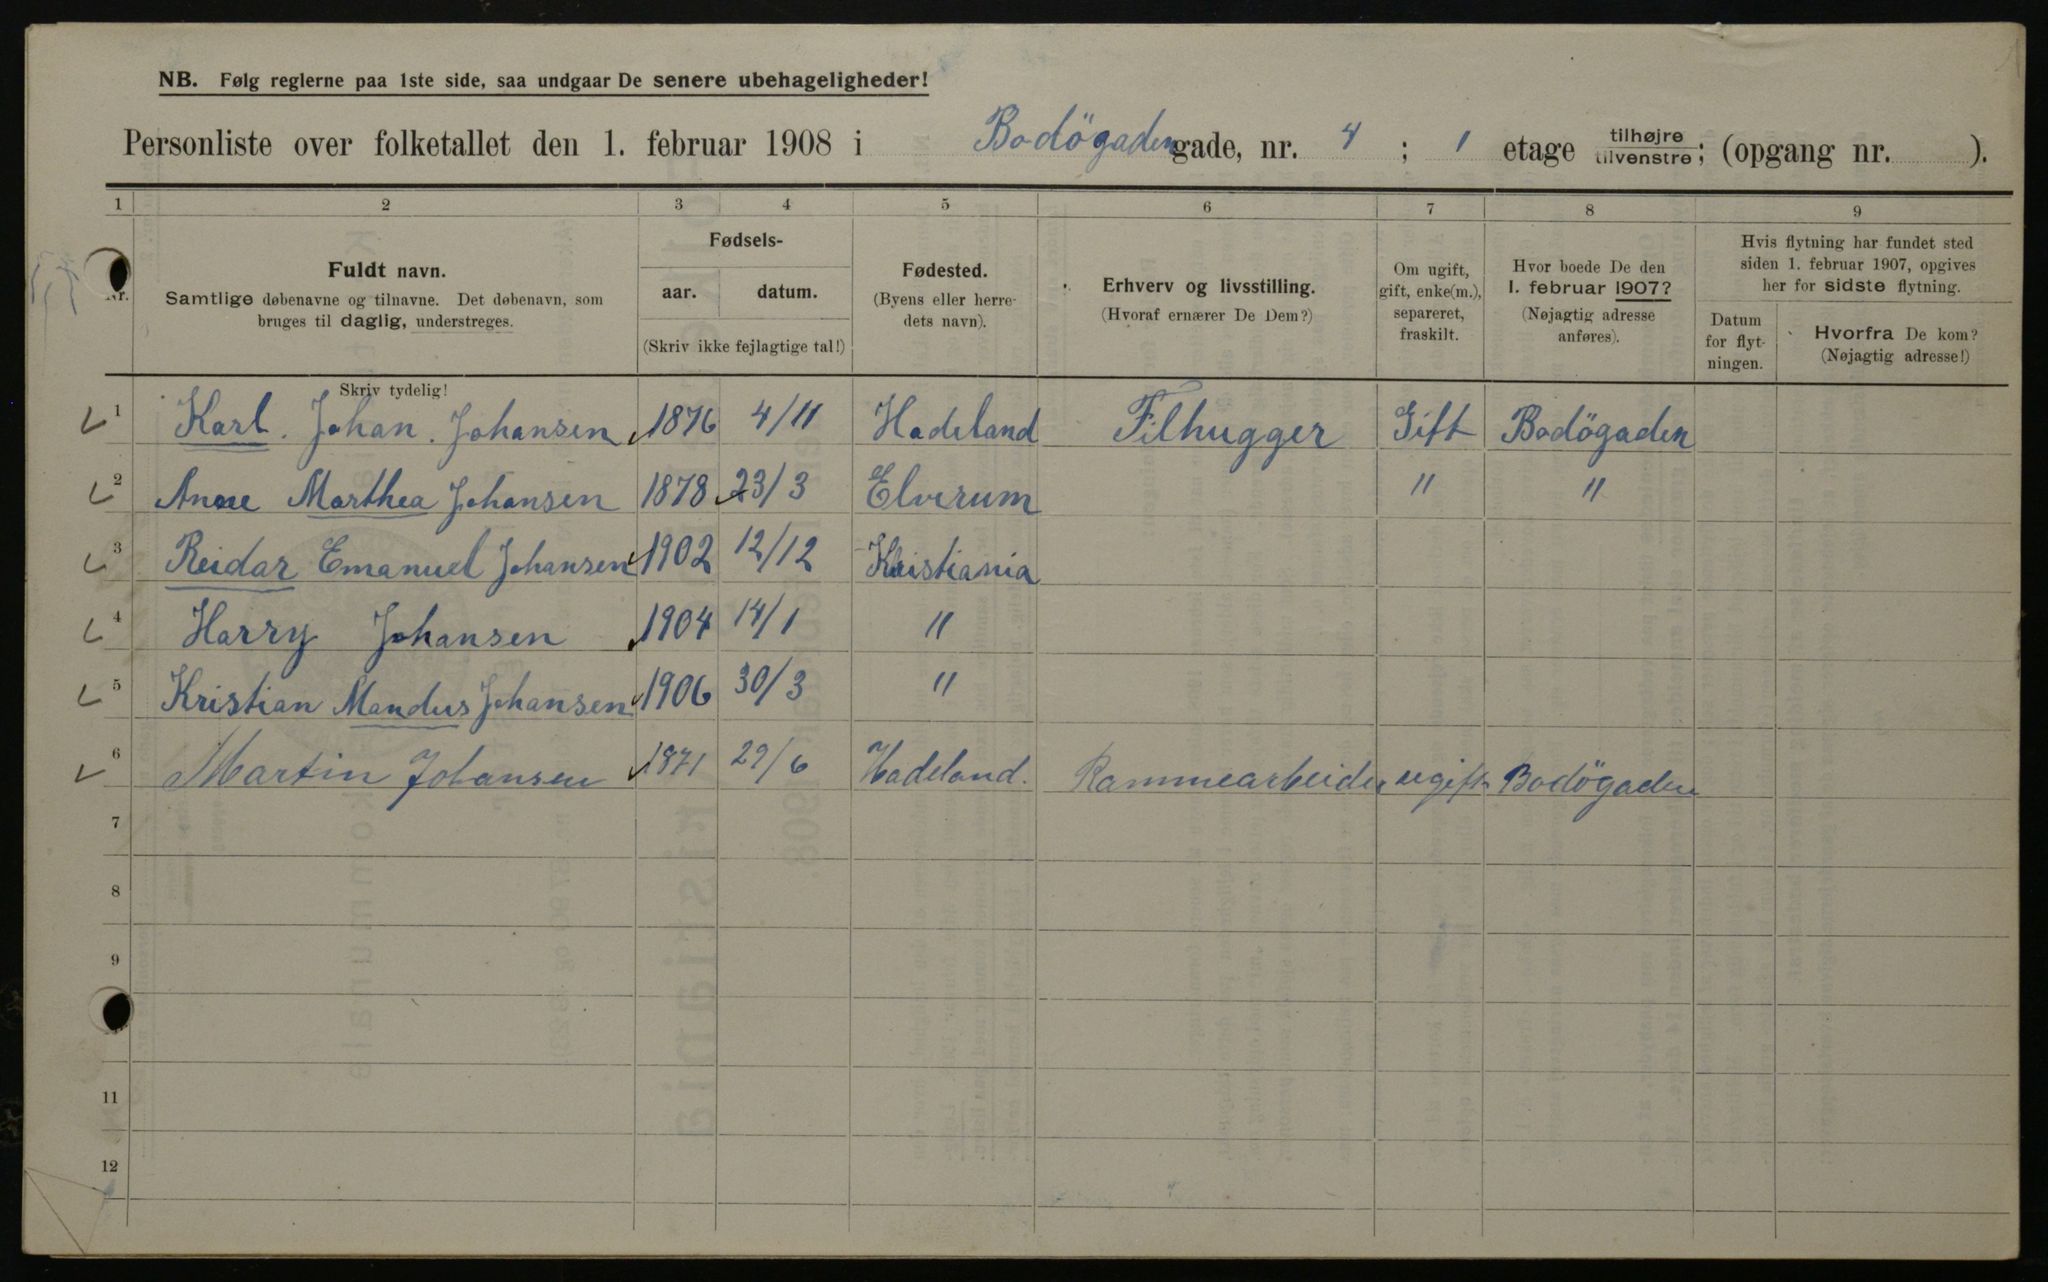 NB. Følg reglerne paa 1ste side, saa undgaar De senere ubehageligheder!
Personliste over folketallet den 1. februar 1908 i Bodögaden gade, nr. 4 ; 1 etage tilhøjre tilvenstre; (opgang nr. ).
1 2 3 4 5 6 7 8 9
Nr.
Fuldt navn.
Samtlige døbenavne og tilnavne. Det døbenavn, som
bruges til daglig, understreges.
Skriv tydelig!
Fødsels-
aar. datum.
(Skriv ikke fejlagtige tal!)
Fødested.
(Byens eller herre-
dets navn).
Erhverv og livsstilling.
(Hvoraf ernærer De Dem?)
Om ugift,
gift, enke(m.),
separeret,
fraskilt.
Hvor boede De den
1. februar 1907?
(Nøjagtig adresse
anføres).
Hvis flytning har fundet sted
siden 1. februar 1907, opgives
her for sidste flytning.
Datum
for flyt-
ningen.
Hvorfra De kom?
(Nøjagtig adresse!)
1 Karl. Johan. Johansen 1876 4/11 Hadeland Filhugger Gift Bodögaden
2 Anne Marthea Johansen 1878 23/3 Elverum " "
3 Reidar Emanuel Johansen 1902 12/12 Kristiania
4 Harry Johansen 1904 14/1 "
5 Kristian Mandus Johansen 1906 30/3 "
6 Martin Johansen 1871 29/6 Hadeland. Rammearbeider ugift Bodögaden
7
8
9
11
12